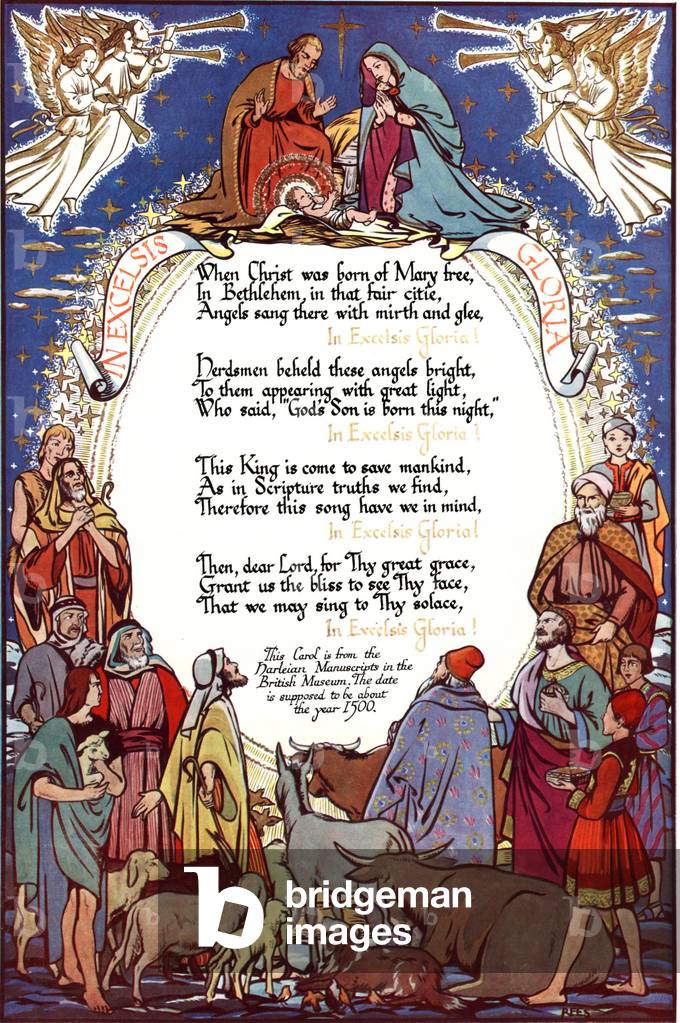 IN EXCELSIS
GLORIA
When Christ was born of Mary free,
In Bethlehem, in that fair citie,
Angels sang there with mirth and glee,
In Excelsis Gloria!
Herdsmen beheld these angels bright,
To them appearing with great light,
Who said, "God's Son is born this night,"
In Excelsis Gloria!
This King is come to save mankind,
As in Scripture truths we find,
Therefore this song have we in mind,
In Excelsis Gloria!
Then, dear Lord, for Thy great grace,
Grant us the bliss to see Thy face,
That we may sing to Thy solace,
In Excelsis Gloria!
This Carol is from the
Harleian Manuscripts in the
British Museum. The date
is supposed to be about
the year 1500.
b bridgeman
images
REES